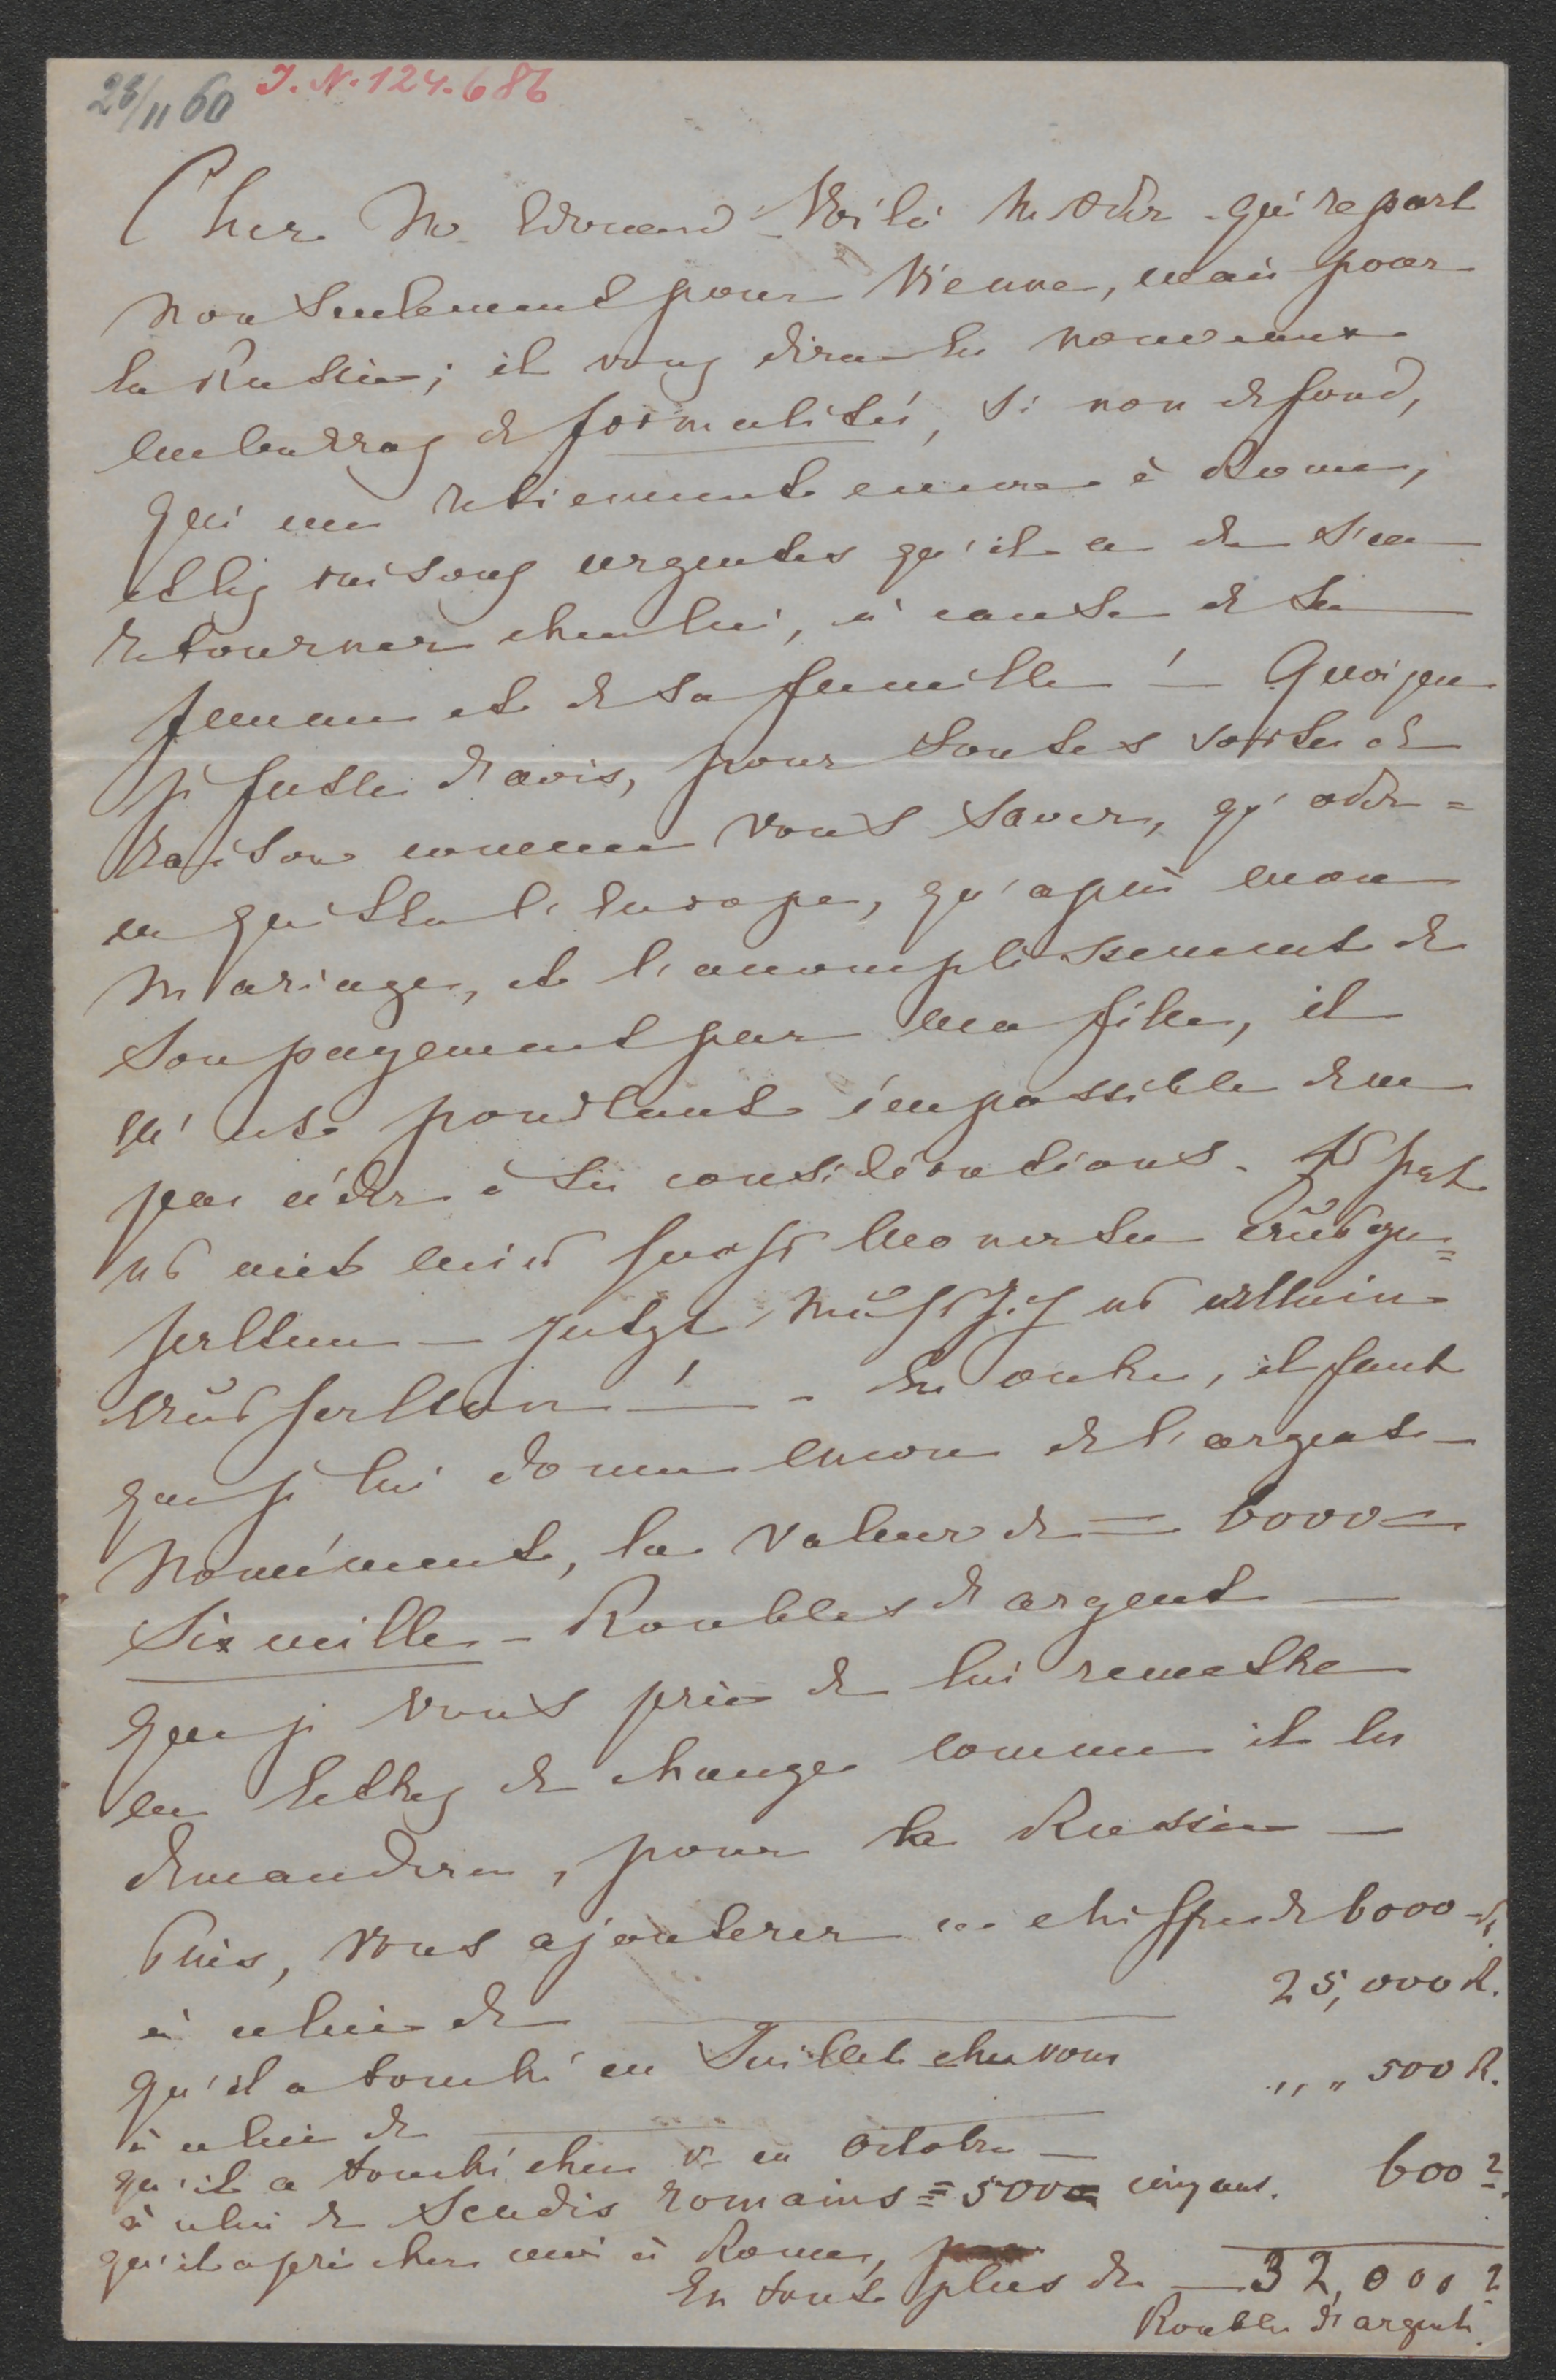 28/11 60 I.N. 124.686
Cher Mr. Edouard Voilà M. Oder qui repart
non seulement pour Vienne, mais pour
la Russie; il vous dira les nouveaux
embarras de formalités, si non de fond,
qui me retiennent encore à Rome,
et les raisons urgentes qu'il a de s'en
retourner chez lui, à cause de sa
femme et de sa famille! — Quoique
je fusse d'avis, pour toutes sortes de
raisons comme vous savez, qu'Oder =
ne quitta l'Europe, qu'après mon
Mariage, et l'accomplissement de
son payement par ma fille, il
m'est pourtant impossible de ne
pas céder à ses considérations. Er hat
es mit mir sechs Monate ausge=
halten — jetzt muß ich es allein
aushalten! — En outre, il faut
que je lui donne encore de l'argent
Nommément, la valeur de = 6000 =
Six mille — Roubles d'argent —
que je vous prie de lui remettre
en lettres de change comme il les
demandera, pour la Russie —
Puis, vous ajouterez ce chiffre de 6000
à celui de — 25,000 R.
qu'il a touché en Juillet chez vous
à celui de — „ „ 500 R.
qu'il a touché chez v. en Octobre —
à celui de Scudis romains = 500 = cinq cent. 600
qu'il a pris chez moi à Rome,
En tout plus de — 32,000
Roubles d'argent.